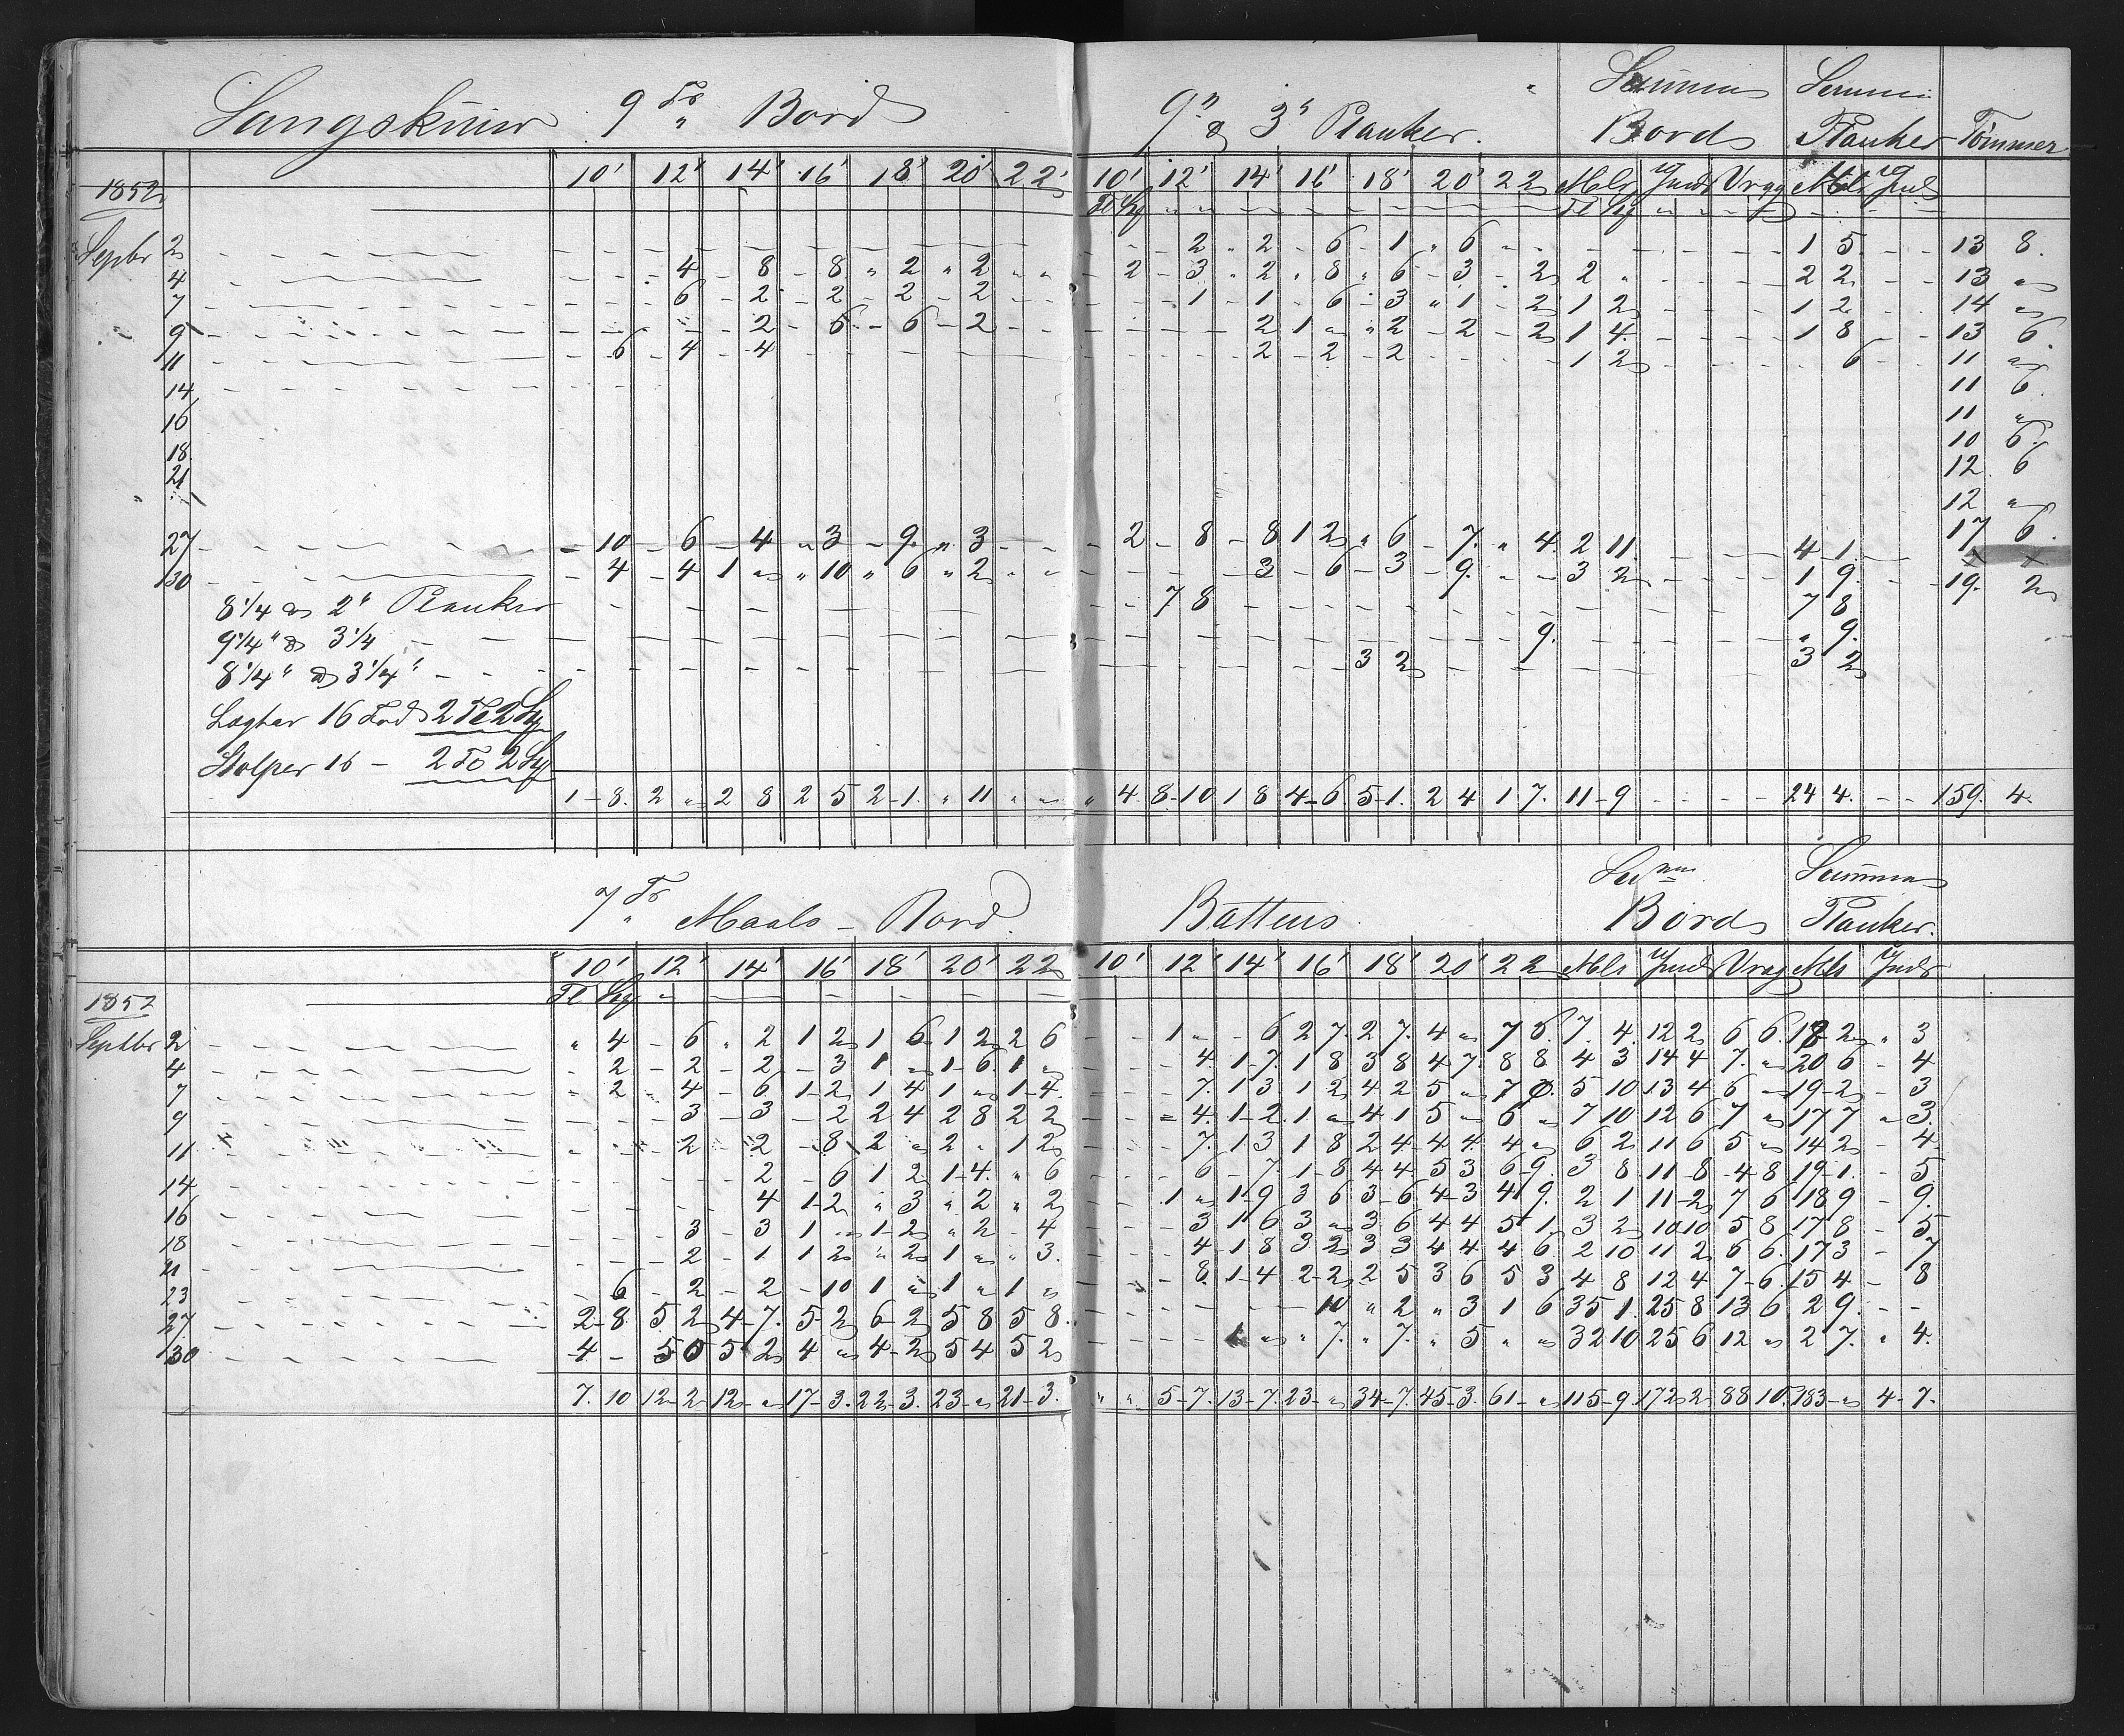 Langskuur 9 Fr " Bord 9" & 3" Planker. Summa Bord Summa Planker Tømmer
1852 10' 12' 14' 16' 18' 20' 22' 10' 12' 14' 16' 18' 20' 22 Mls Undr Vrag Mls Undr
Tl Sk Tl Sk
Septbr 2 - 2 " 2 - 6 - 1 " 6 1 5 13 8.
4 4 - 8 - 8 " 2 " 2 " " - 2 - 3 " 2 " 8 " 6 - 3 - 2 2 " 2 2 13 "
7 6 - 2 - 2 - 2 - 2 - 1 - 1 - 6 - 3 " 1 - 2 1 2 1 2 14 "
9 - 2 - 6 - 6 - 2 2 1 " " 2 - 2 - 2 1 4 1 8 13 6.
11 - 6 - 4 - 4 2 - 2 - 2 1 2 6 11 "
14 11 6.
16 11 "
18 10 6.
21 12 6
12 "
27 - 10 - 6 - 4 " 3 - 9 " 3 - 2 - 8 - 8 1 2 " 6 - 7. " 4. 2 11. 4 1. 17 6.
x x
30 - 4 - 4 1 " " 10 " 6 " 2 - 3 - 6 - 3 - 9. 3 2 1 9. 19. 2
8 1/4 & 2" Planker 7 8 7 8
9 1/4" & 3 1/4 9. " 9.
8 1/4" & 3 1/4" 3 2 3 2
Lægter 16 Fod 2 Tl 2 Sk
Stolper 16 - 2 Tl 2 Sk
1 - 8. 2 " 2 8 2 5 2 - 1. " 11 " " " 4 8 - 10 1 8 4 - 6 5 - 1. 2 4 1 7. 11 - 9 24 4. 159. 4.
7 Fr " Maals - Bord. Battens Summa Bord Summa Planker.
10' 12' 14' 16' 18' 20' 22 10' 12' 14' 16' 18' 20' 22 Mls Undr Vrag Mls Undr
1852 Tl Sk
Septbr 2 " 4 - 6 " 2 1 2 1 6 1 2 2 6 1 " - 6 2 7. 2 7. 4 " 7 6. 7. 4. 12 2 6 6. 18 2 " 3
4 - 2 - 2 - 2 - 3 1 " 1 - 6. 1 " 4. 1 - 7. 1 8 3 8 4 7. 8 8 4 3 14 4 7. " 20 6 - 4
7 " 2 - 4 - 6 1 - 2 1 4 1 " 1 - 4. 7. 1 3 1 2 4 2 5 " 7 0. 5 10 13 4 6 - 19 - 2 - 3
9 3 - 3 - 2 2 4 2 8 2 2 4. 1 - 2. 1 " 4 1 5 " 6 " 7 10 12 6 7 " 17 7 " 3.
11 2 - 2 - 8 2 " 2 " 1 2 7. 1 3 1 8 2 4 4 4. 4 " 6 2 11 6 5 " 14 2 - 4
14 2 - 6 1 2 1 - 4. " 6 6 - 7. 1 - 8 4 4 5 3 6 - 9. 3 8 11 - 8 4 8 19 - 1. - 5.
16 4 1 - 2 " 3 " 2 " 2 1 " 1 - 9 3 6 3 - 6 4 3 4 9. 2 1 11 - 2 7 6 18 9 - 9.
18 3 - 3 1 " 1 - 2 " 2 - 4 3 1 6 3 " 3 6 4 4 5 1. 3 2 10 10 5 8 17 8 - 5
21 2 - 1 1 2 " 2 1 " " 3. 4 1 8 3 2 3 3 4 4 4 6. 2 10 11 2 6 6. 17 3 - 7
23 - 6 - 2 - 2 - 10 1 " 1 " 1 " 8 1 - 4 2 - 2 2 5 3 6 5 3 4 8 12 4 7 - 6. 15 4 - 8
27 2 - 8 5 2 4 - 7. 5 - 2 6 - 2 5 8 5 8. 10 " 2 " 3 1 6 35 1. 25 8 13 6 2 9. - -
30 4 - 5 0 5 2 4 " 4 - 2 5 4 5 2 1 " " 7. " 7. " 5 " " 32 10 25 6 12 " 2 7. " 4.
7. 10 12 - 2 12 " 17 - 3. 22 - 3. 23 - " 21 - 3. " " 5 - 7. 13 - 7. 23 " 34 - 7. 45 - 3. 61 - " 115 - 9. 172 2 88 10. 183 - " 4 - 7.